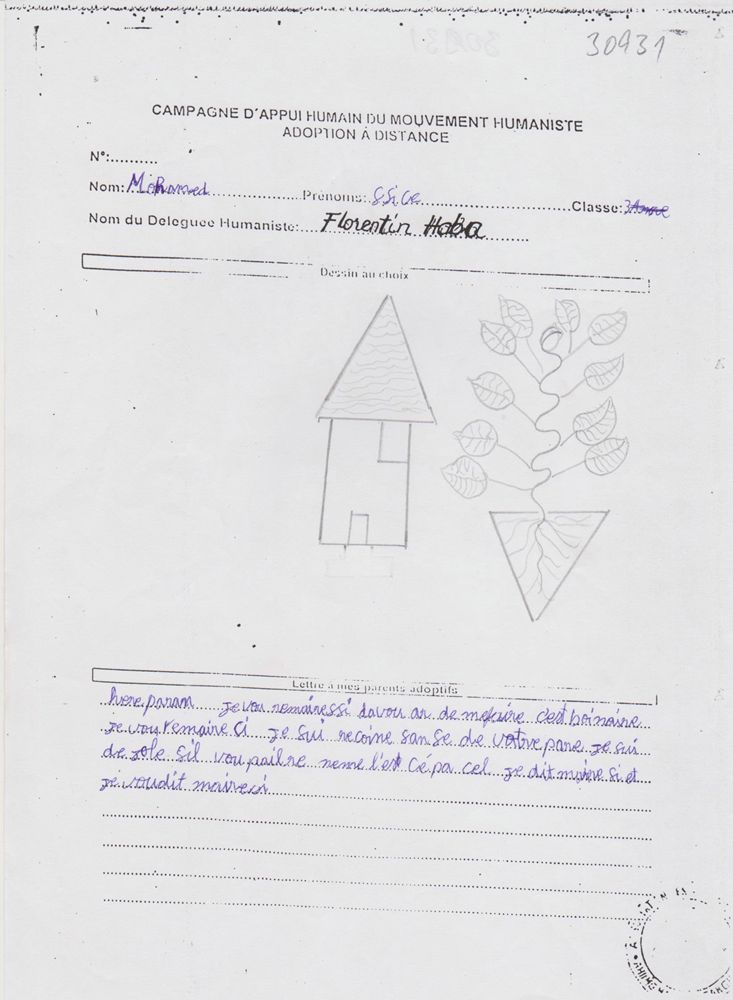 30931
CAMPAGNE D'APPUI HUMAIN DU MOUVEMENT HUMANISTE
ADOPTION À DISTANCE
N°:..........
Nom: Mohamed Prénoms: Classe: 3
Nom du Deleguee Humaniste: Florentin Haba
Dessin au choix
Lettre à mes parents adoptifs
here param je vou remairessi davou ar de c'est boinaire
je vou remaire ci je sui recone san se de votre pane je sui
de sole sil vou pail ne neme l'est cé pa cel je dit maire si et
je voudit maireci